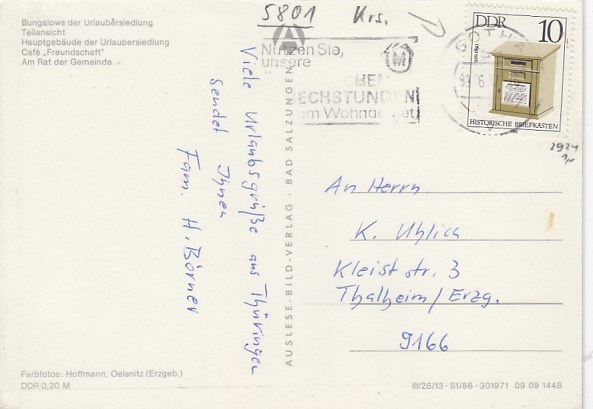 Bungalows der Urlaubersiedlung
Teilansicht
Hauptgebäude der Urlaubersiedlung
Café „Freundschaft"
Am Rat der Gemeinde
5801 Krs.
Nutzen Sie,
unsere
CHEN
ECHSTUNDEN
em Wohngebiet
GOTHA
DDR 10
HISTORISCHE BRIEFKASTEN
2924
Viele Urlaubsgrüße aus Thüringen
sendet Ihnen
Fam. H. Börner
AUSLESE-BILD-VERLAG · BAD SALZUNGEN
An Herrn
K. Uhlich
Kleiststr. 3
Thalheim/Erzg.
9166
Farbfotos: Hoffmann, Oelsnitz (Erzgeb.)
DDR 0,20 M
III/26/13 - S1/86 - 301971 09 09 1448